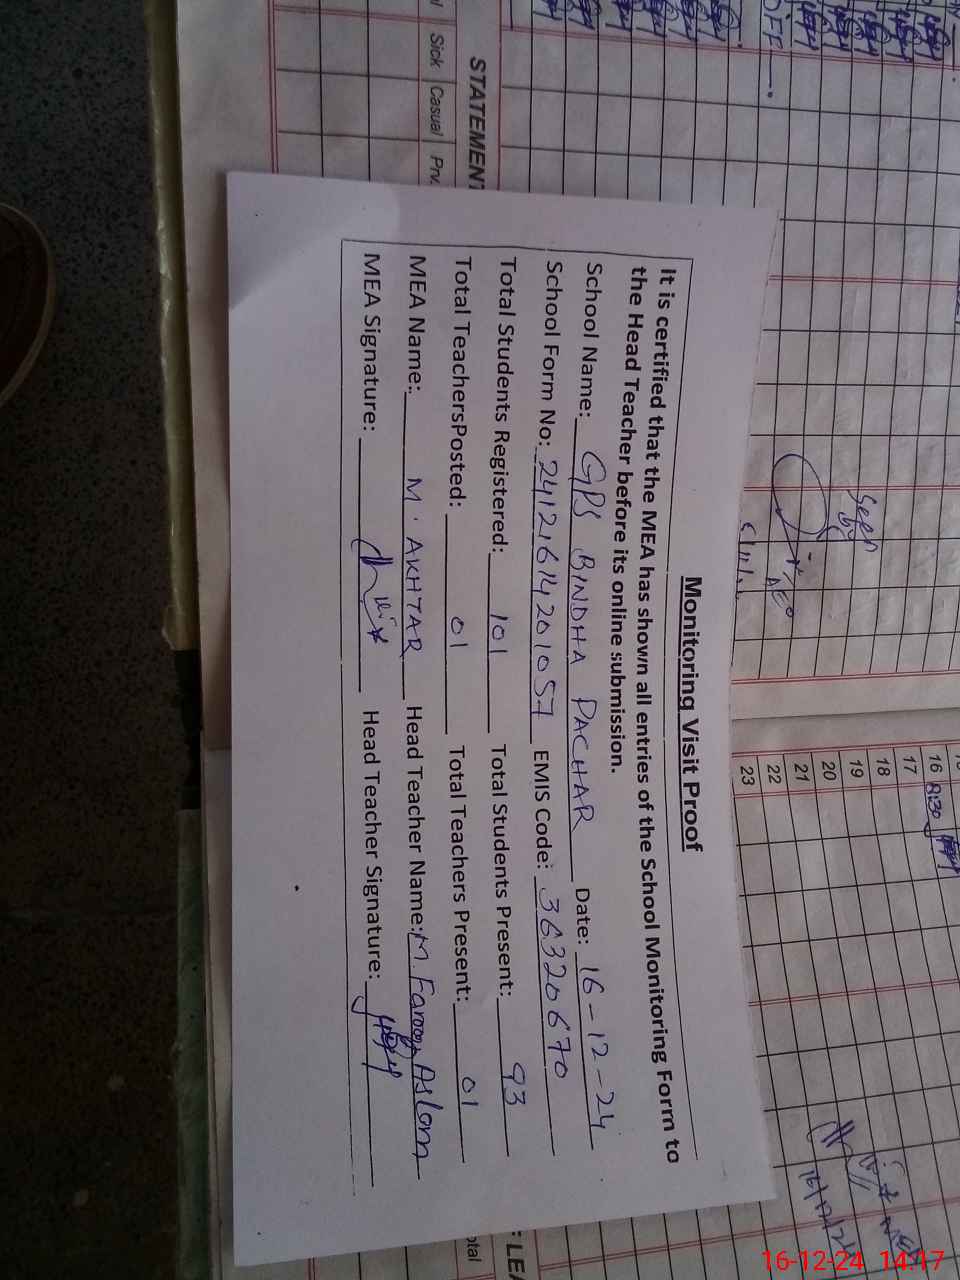 Monitoring Visit Proof
It is certified that the MEA has shown all entries of the School Monitoring Form to
the Head Teacher before its online submission.
School Name: GPS BINDHA PACHAR Date: 16-12-24
School Form No: 24121614201057 EMIS Code: 36320670
Total Students Registered: 101 Total Students Present: 93
Total TeachersPosted: 01 Total Teachers Present: 01
MEA Name: M. AKHTAR Head Teacher Name: M. Farooq Aslam
MEA Signature: Head Teacher Signature:
STATEMENT
Sick Casual Prv.
OFF
16 8:30
17
18
19
20
21
22
23
: LEA
otal
16-12-24 14:17